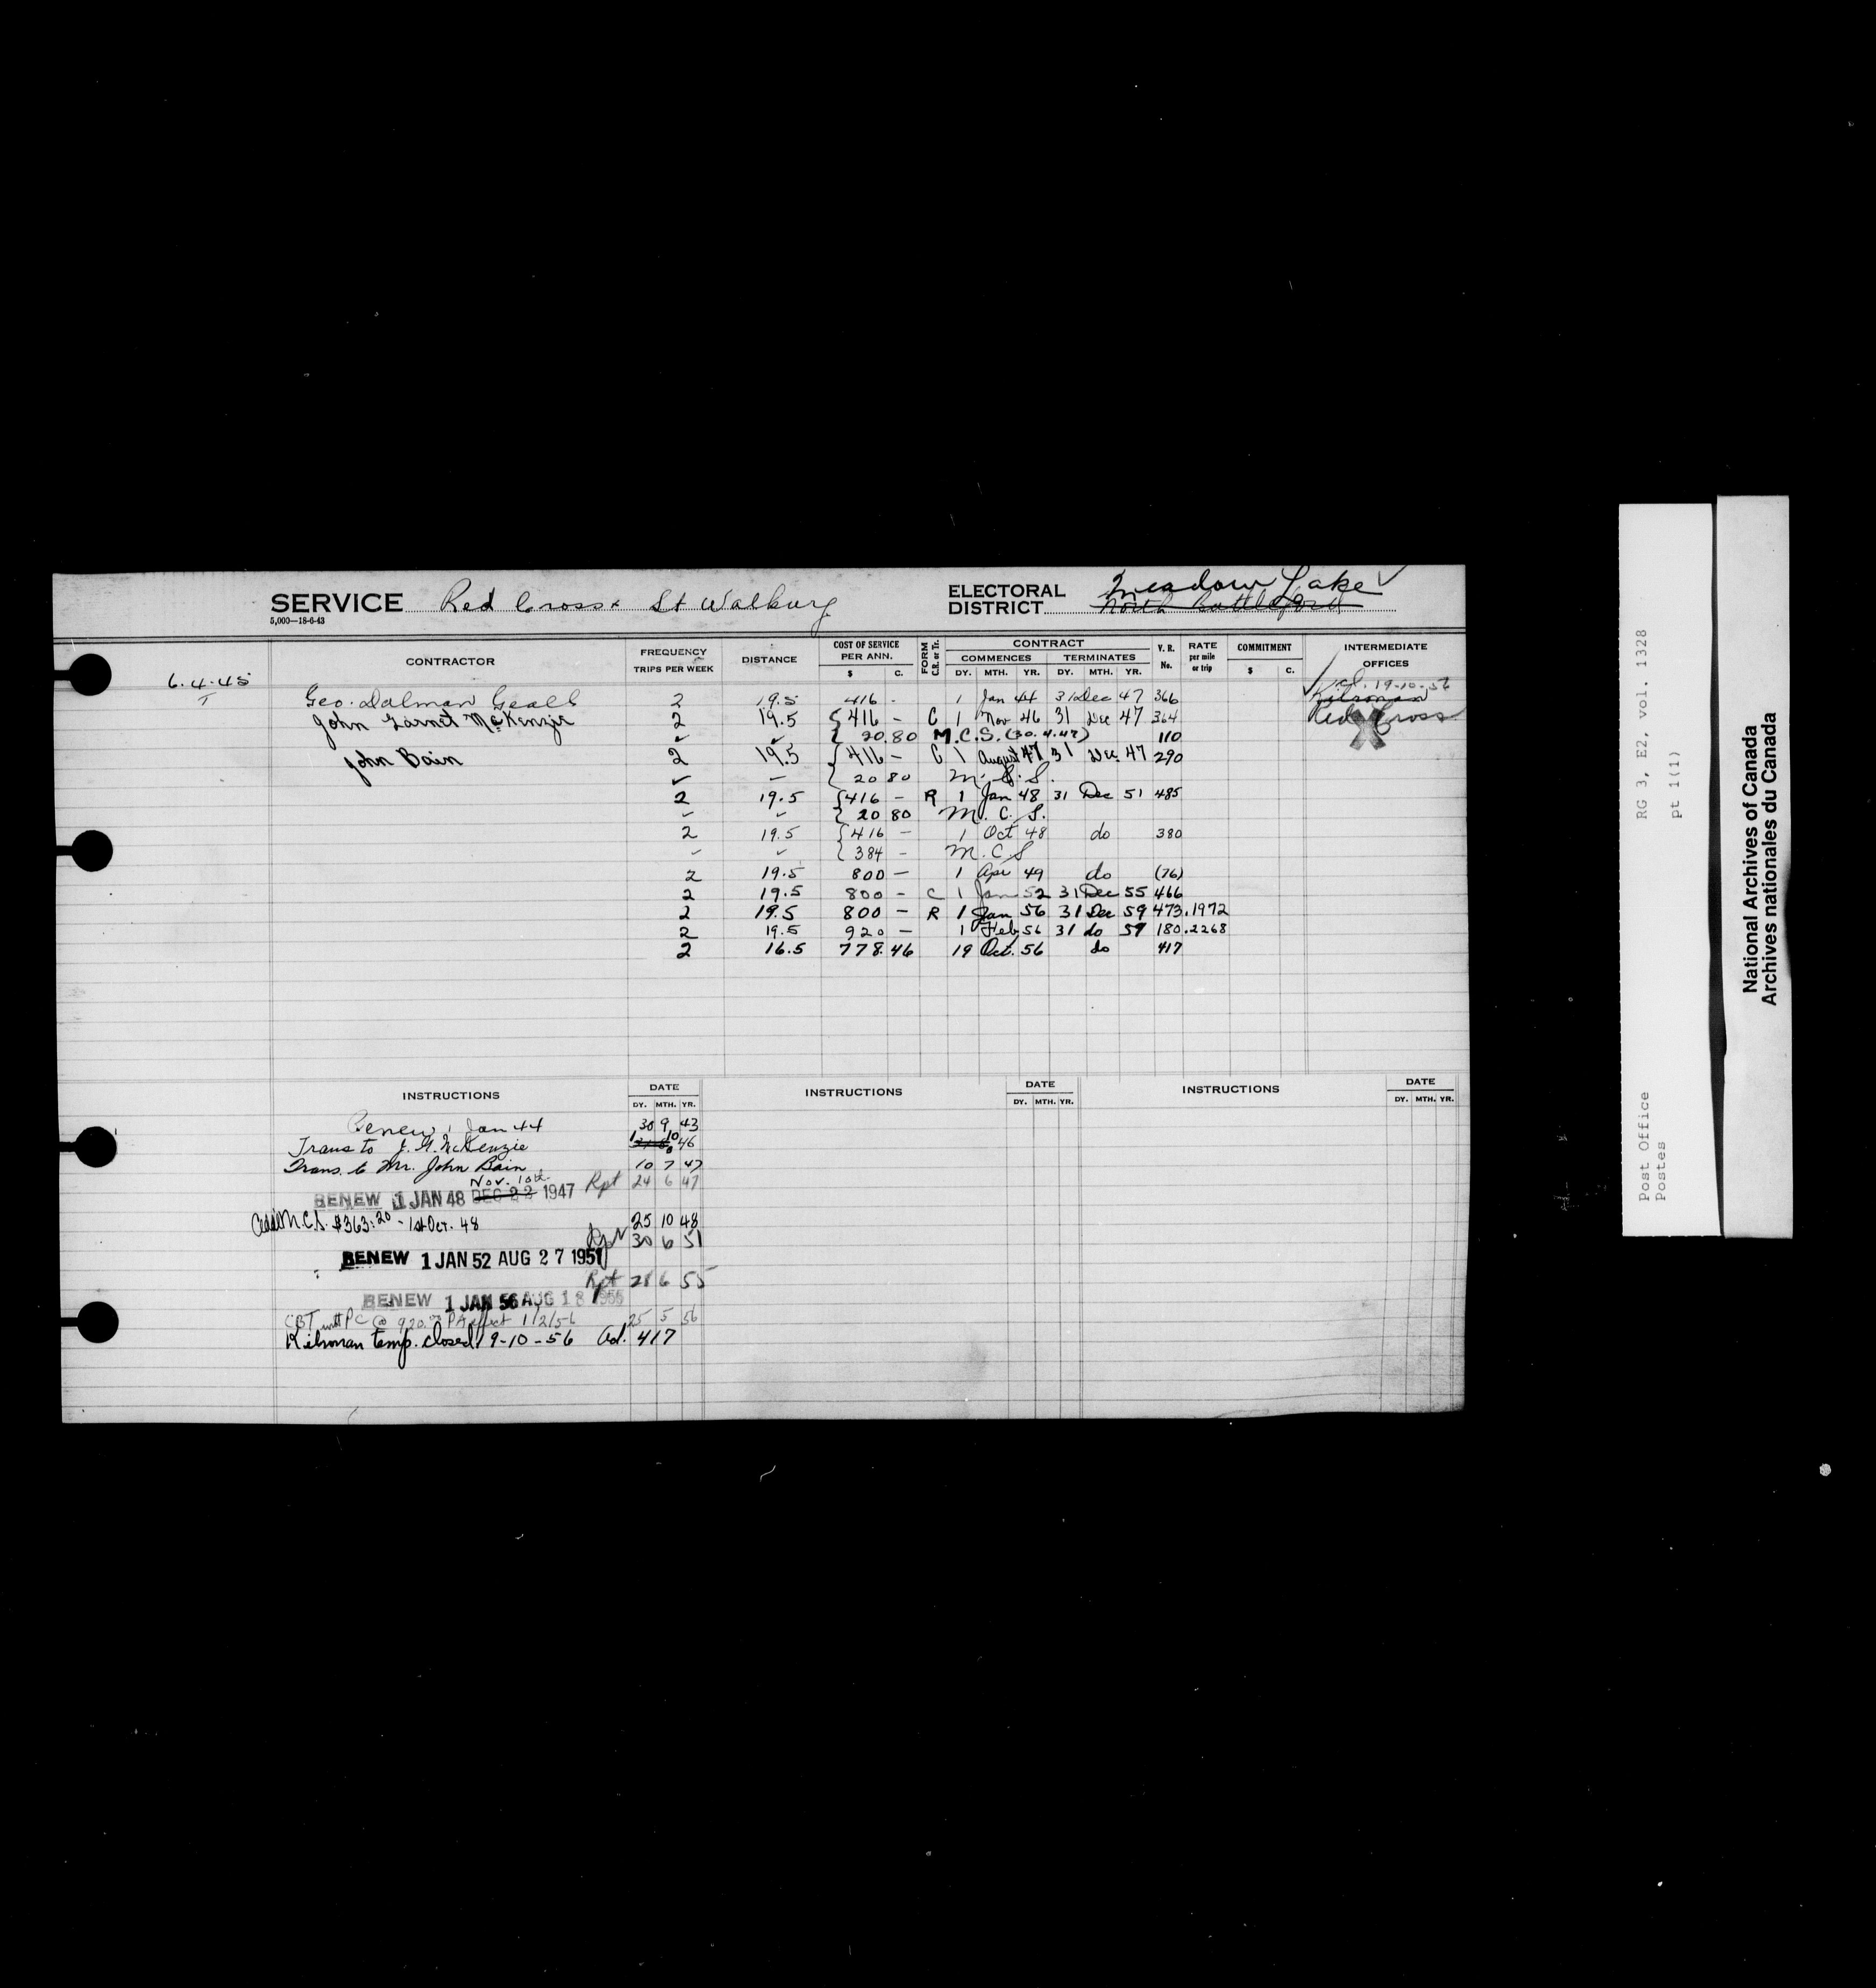 SERVICE Red Cross & St Walburg ELECTORAL DISTRICT Meadow Lake
North Battleford
5,000—18-6-43
CONTRACTOR FREQUENCY TRIPS PER WEEK DISTANCE COST OF SERVICE PER ANN. $ C. FORM C.R. or Tr. CONTRACT COMMENCES DY. MTH. YR. TERMINATES DY. MTH. YR. V.R. No. RATE per mile or trip COMMITMENT $ C. INTERMEDIATE OFFICES
6.4.45
cl. 19-10-56
Geo. Dalman Geall 2 19.5 416 - 1 Jan 44 31 Dec 47 366 Kilronan
John Garnet McKenzie 2 19.5 416 - C 1 Nov 46 31 Dec 47 364 Red Cross
20.80 M.C.S. (30.4.47) 110
John Bain 2 19.5 416 - C 1 August 47 31 Dec. 47 290
20 80
2 19.5 416 - R 1 Jan 48 31 Dec 51 485
20 80 M.C.S.
2 19.5 416 - 1 Oct 48 do 380
384 - M.C.S
2 19.5 800 - 1 Apr 49 do (76)
2 19.5 800 - C 1 Jan 52 31 Dec 55 466
2 19.5 800 - R 1 Jan 56 31 Dec 59 473 .1972
2 19.5 920 - 1 Feb 56 31 do 59 180 .2268
2 16.5 778.46 19 Oct. 56 do 417
INSTRUCTIONS DATE DY. MTH. YR. INSTRUCTIONS DATE DY. MTH. YR. INSTRUCTIONS DATE DY. MTH. YR.
Renew 1 Jan 44 30 9 43
Trans to J. G. McKenzie 1 10 46
Trans. to Mr. John Bain 10 7 47
Nov. 10th
RENEW 1 JAN 48 DEC 23 1947 Rpt 24 6 47
Add M.C.S. $363.20 - 1st Oct. 48 25 10 48
Rpt 30 6 51
RENEW 1 JAN 52 AUG 27 1951
Rpt 28 6 55
RENEW 1 JAN 56 AUG 18 1955
CBT with PC @ 920.00 PA effect 1/2/56 25 5 56
Kilronan temp. closed 19-10-56 Ad. 417
RG 3, E2, vol. 1328
pt 1(1)
Post Office
Postes
National Archives of Canada
Archives nationales du Canada